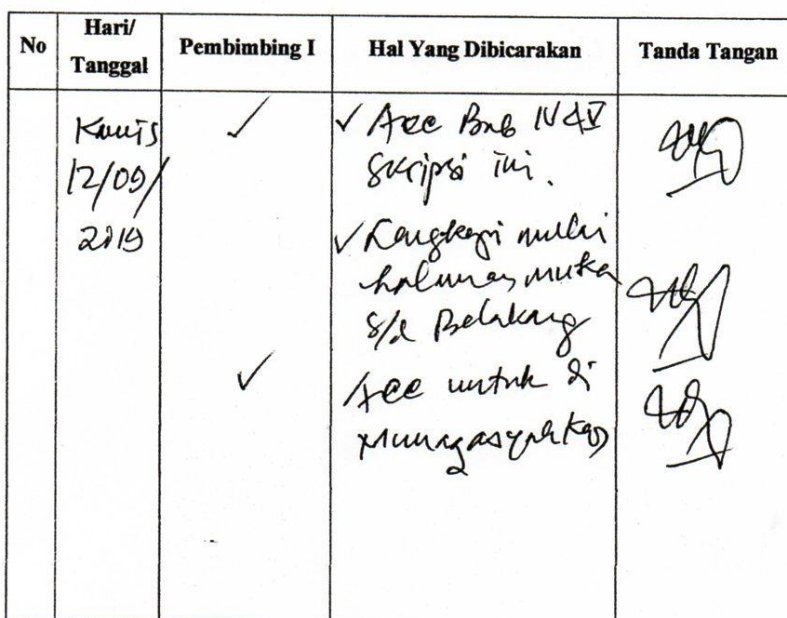 No
Hari/
Tanggal
Pembimbing I
Hal Yang Dibicarakan
Tanda Tangan
Kamis
12/09/
2019
✓
✓ Acc Bab IV & V
Skripsi ini.
✓ Lengkapi mulai
halaman muka
s/d Belakang
✓
Acc untuk di
munaqasyahkan